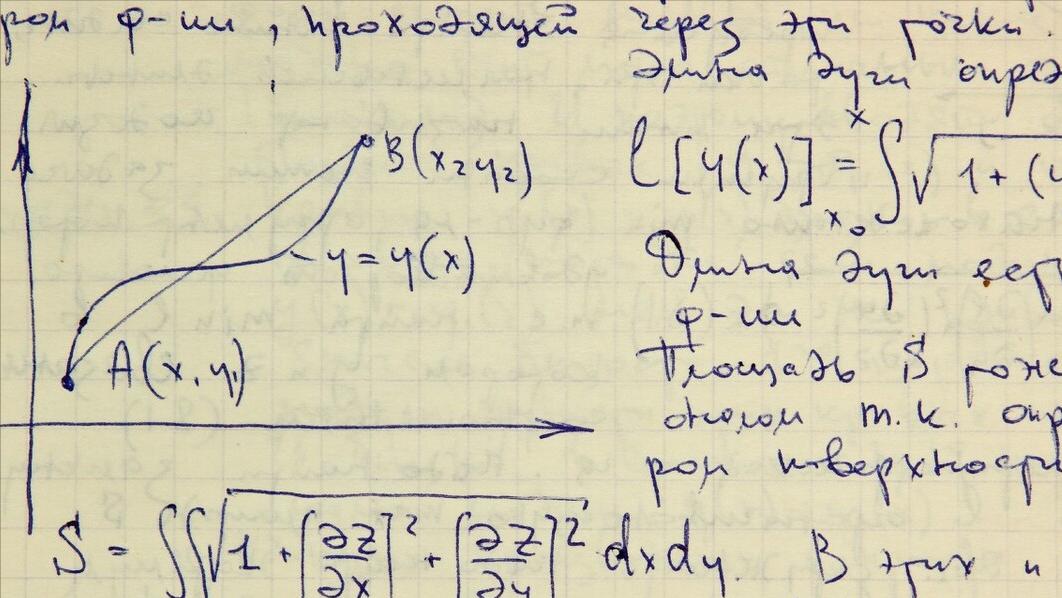 рой ф-ии, проходящей через эти точки.
Длина дуги опред
B(x₂y₂)
l[y(x)] = ∫ₓ₀ˣ √1+(y
y=y(x)
Длина дуги есть
ф-ии
A(x₁y₁)
Площадь S тоже
т.к. опр
рой поверхности
S = ∬√1+[∂z/∂x]²+[∂z/∂y]² dxdy. В этих и